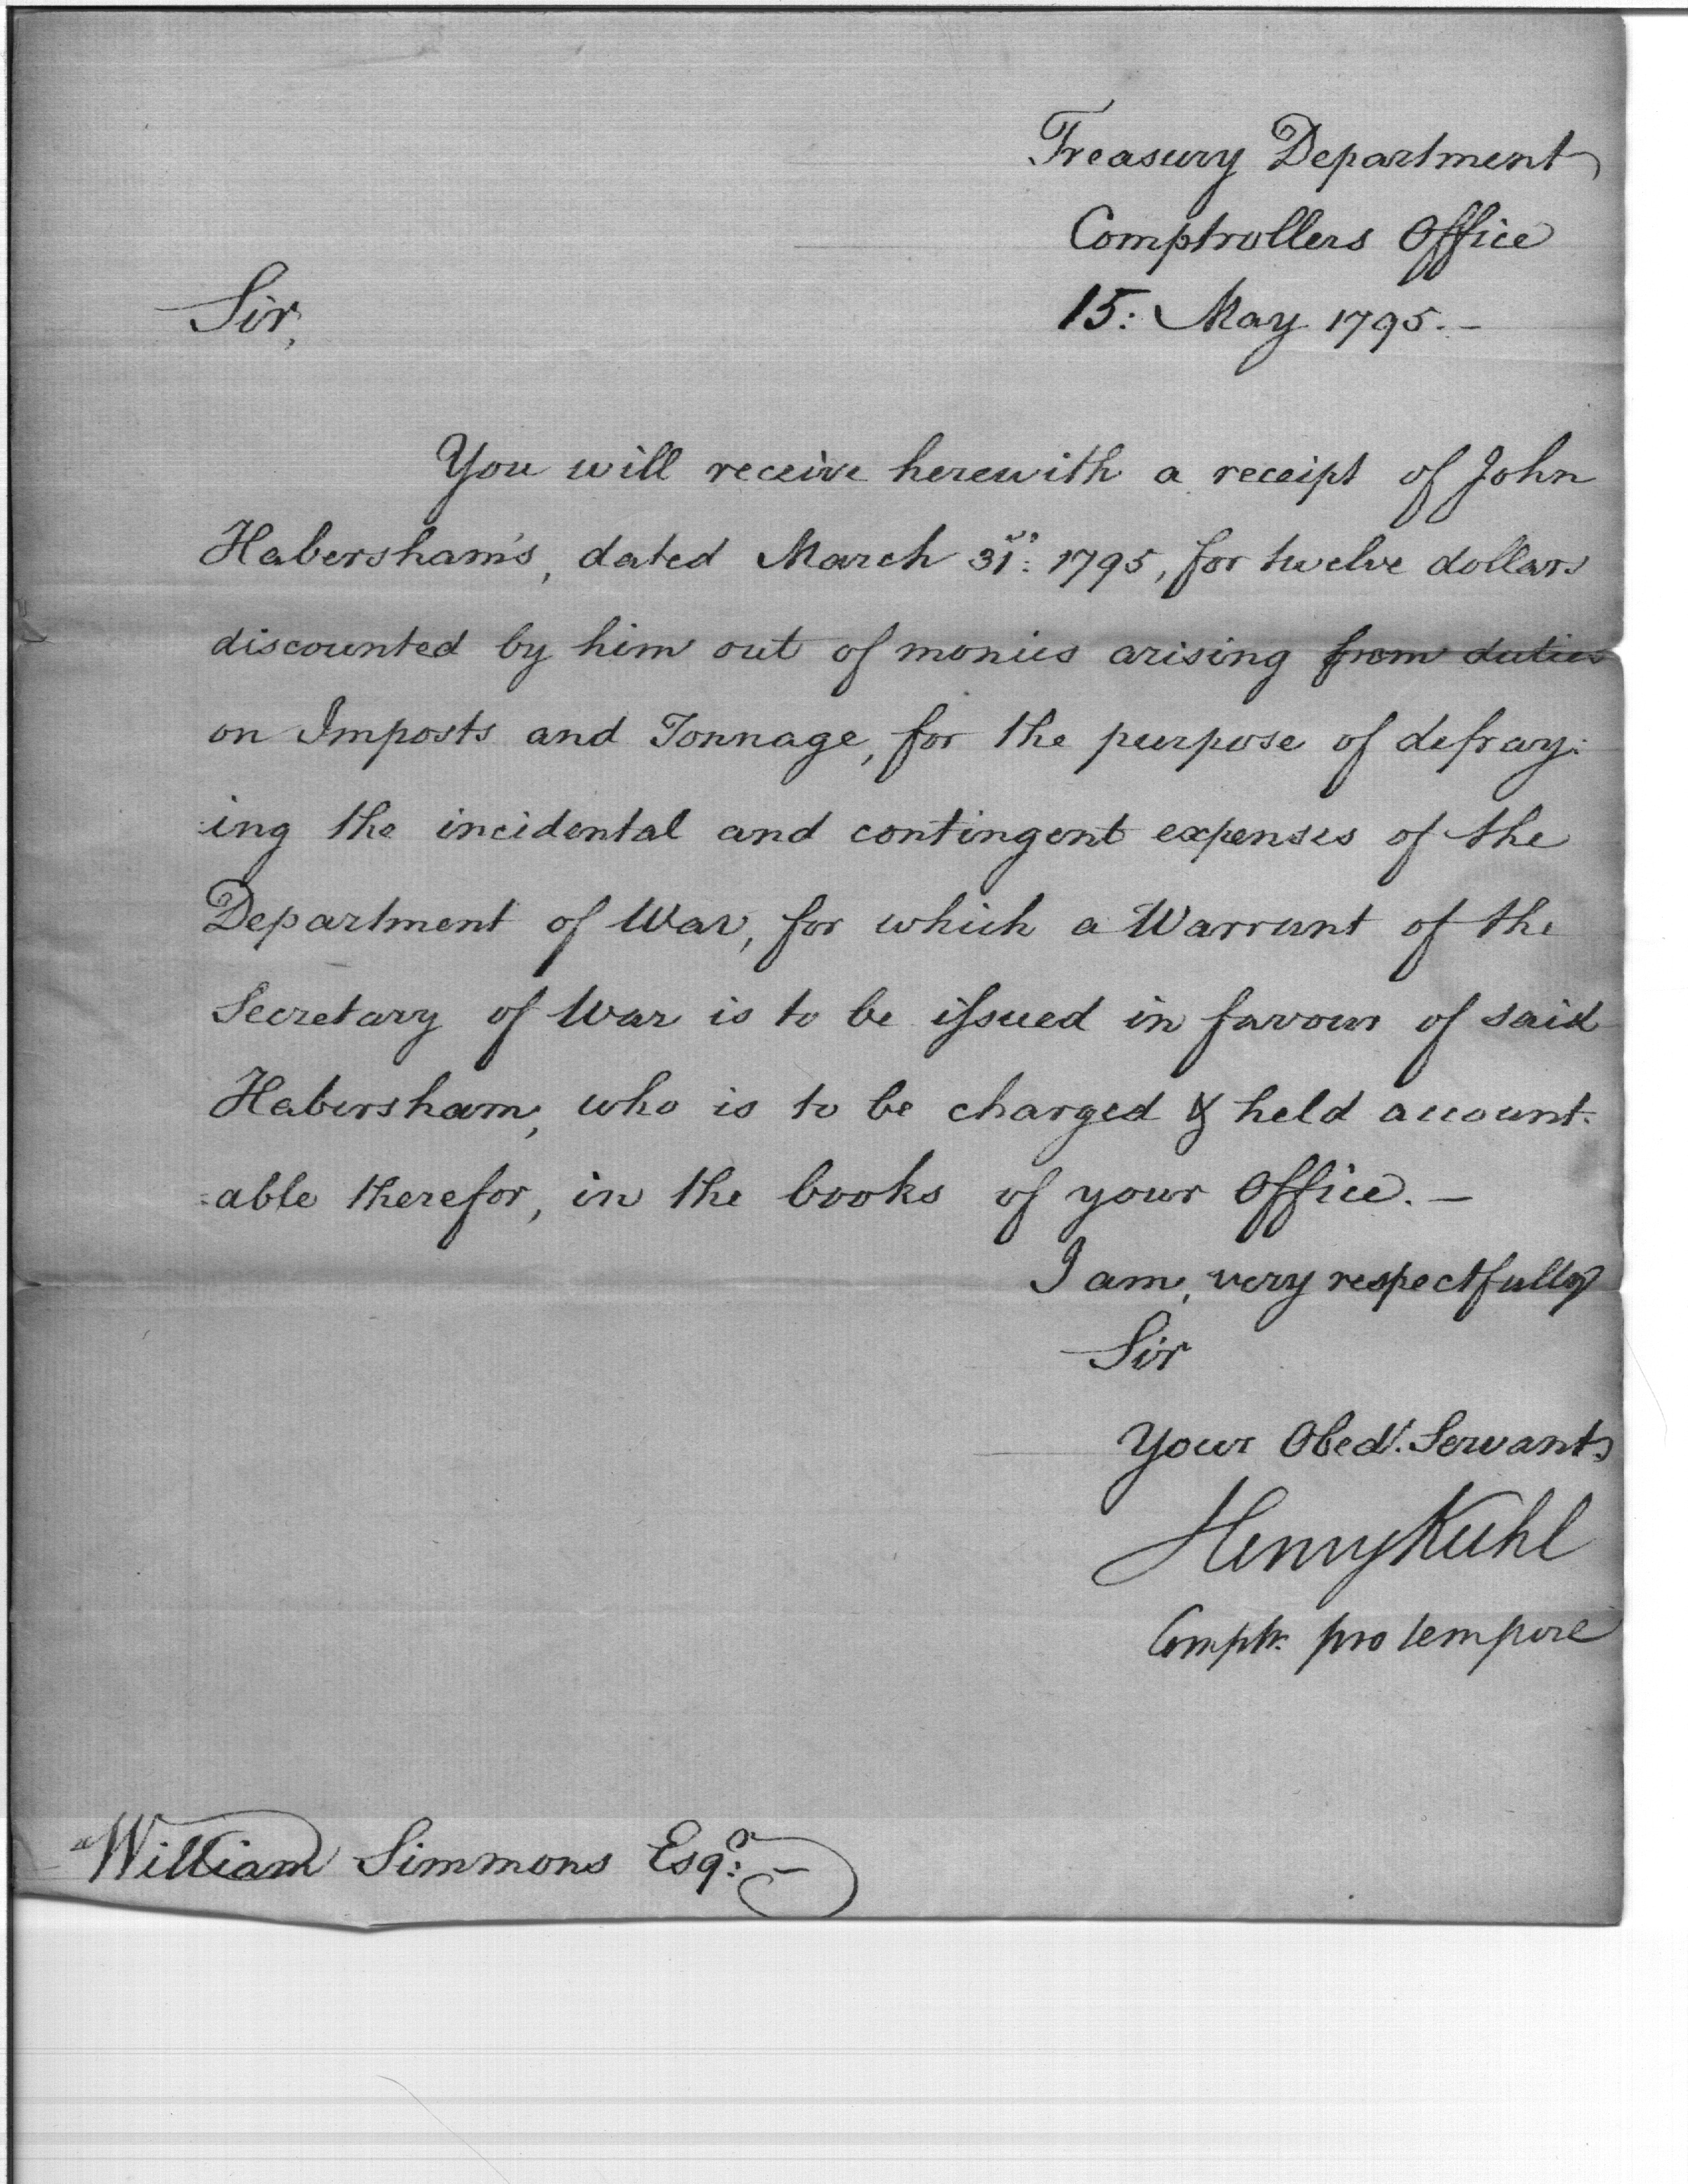 Treasury Department
Comptrollers Office
Sir,
15: May 1795.-
You will receive herewith a receipt of John
Habersham's, dated March 31st: 1795, for twelve dollars
discounted by him out of monies arising from duties
on Imposts and Tonnage, for the purpose of defray:
:ing the incidental and contingent expenses of the
Department of War, for which a Warrant of the
Secretary of War is to be issued in favour of said
Habersham, who is to be charged & held account:
:able therefor, in the books of your Office. -
I am, very respectfully
Sir
Your Obedt. Servant
Henry Kuhl
Comptr. pro tempore
William Simmons Esqr: -